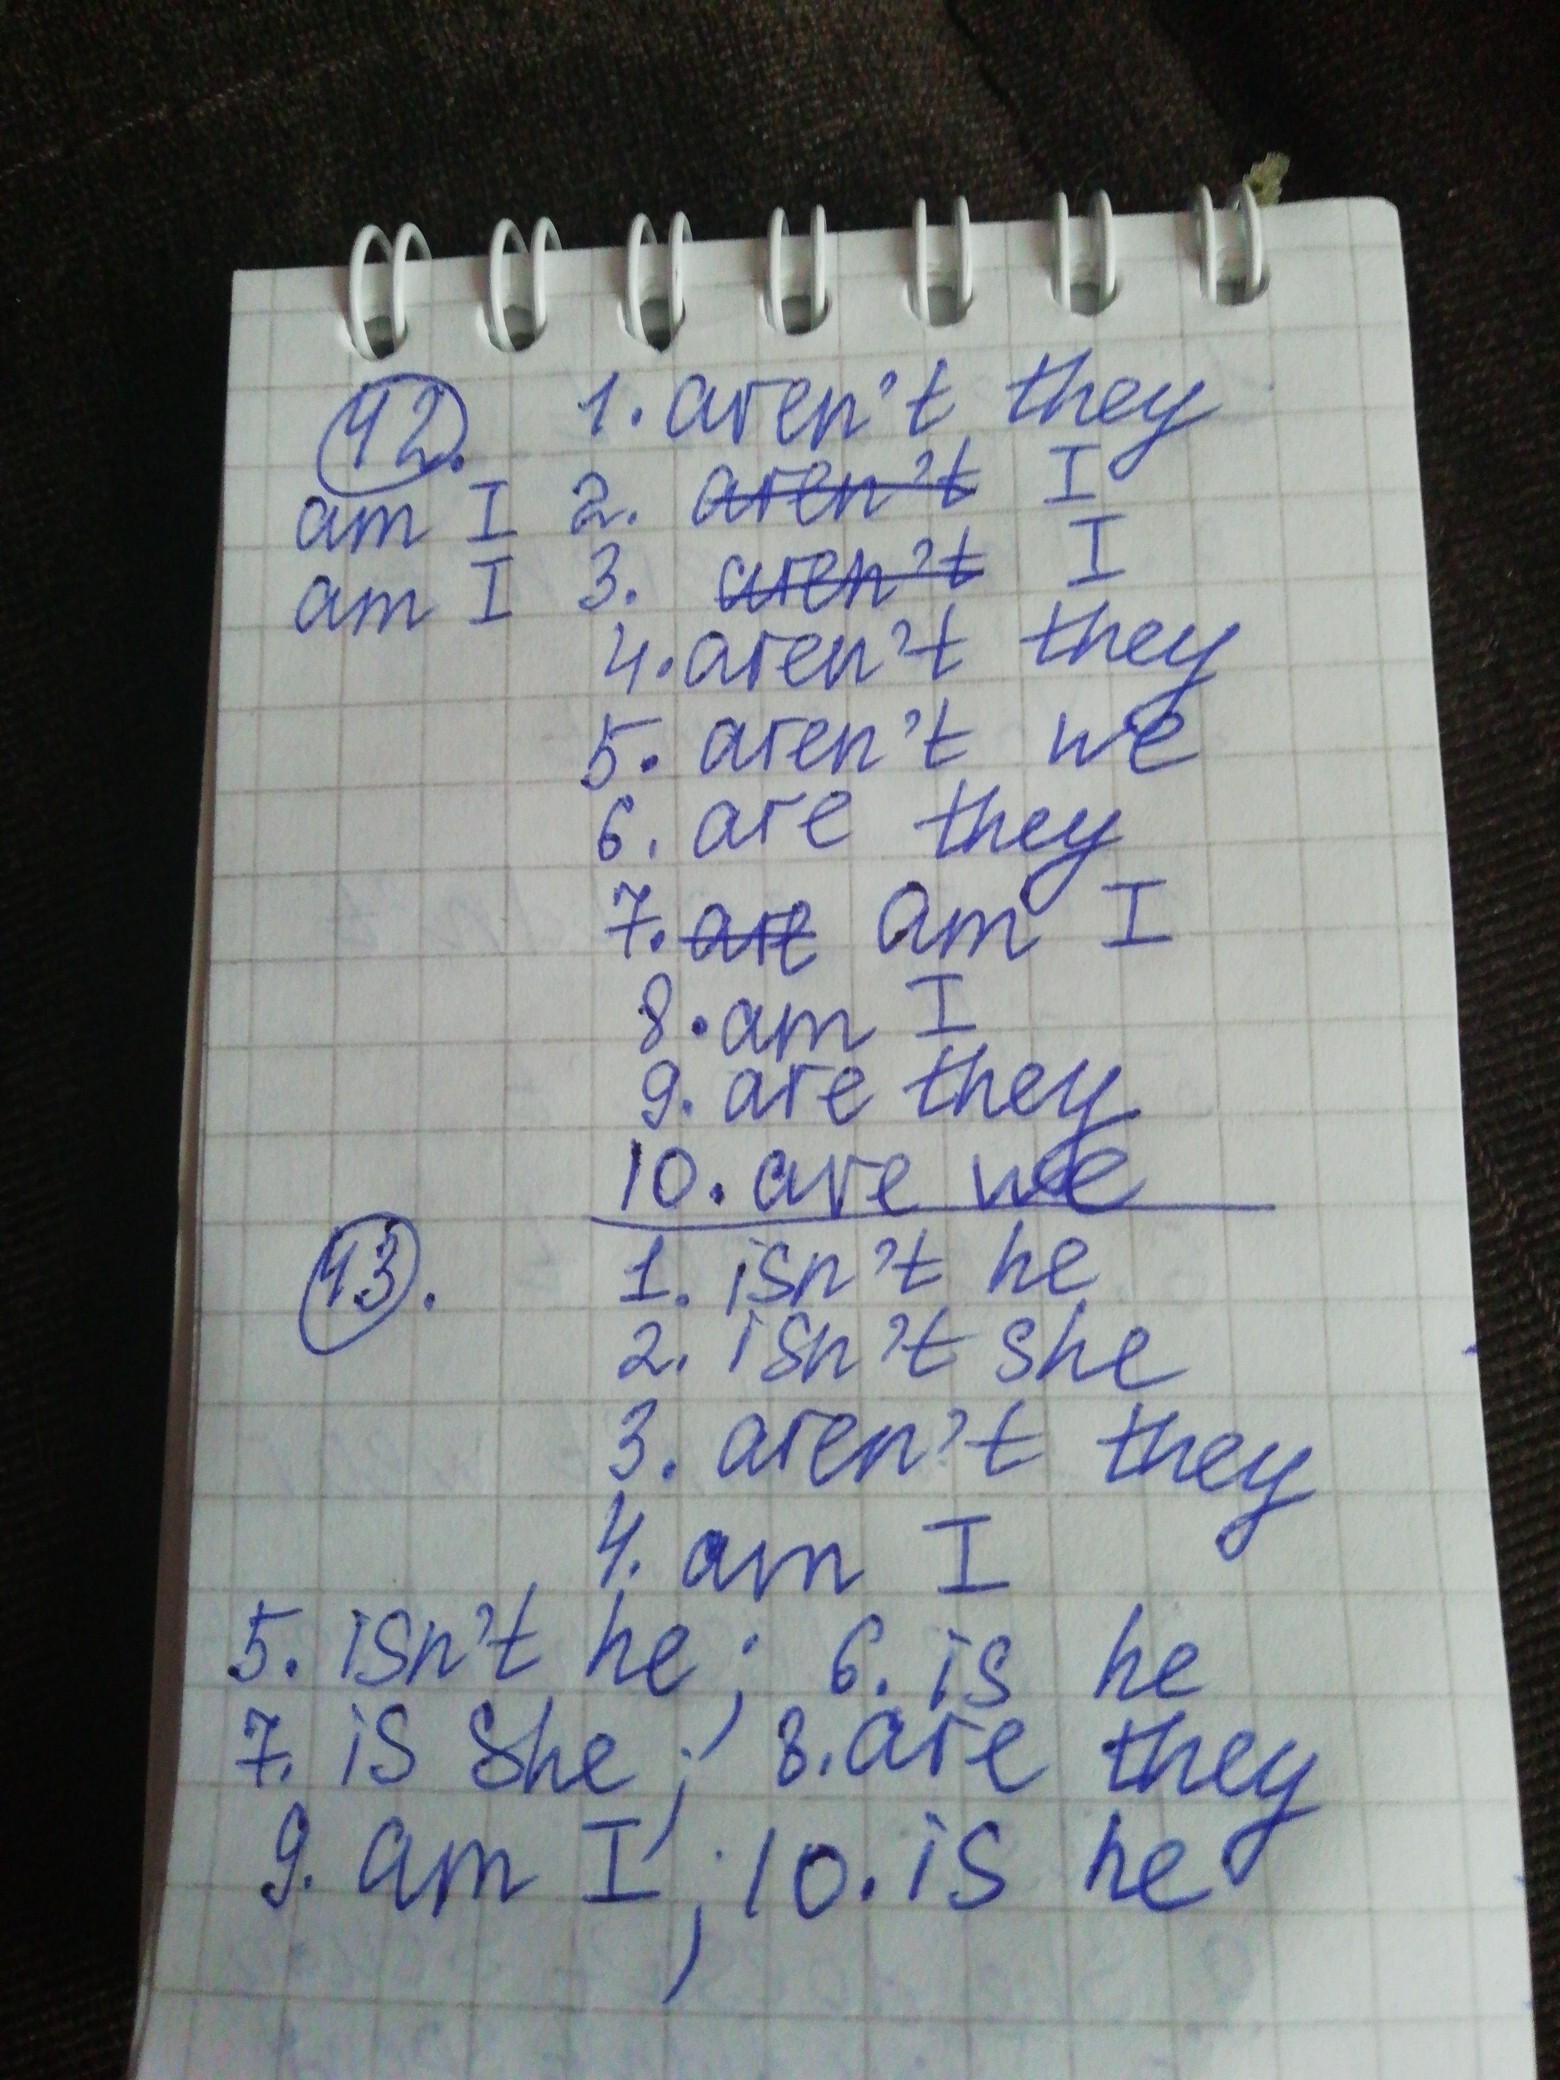 12. 1. aren't they
am I 2. aren't I
am I 3. aren't I
4. aren't they
5. aren't we
6. are they
7. are am I
8. am I
9. are they
10. are we
13. 1. isn't he
2. isn't she
3. aren't they
4. am I
5. isn't he; 6. is he
7. is she; 8. are they
9. am I; 10. is he